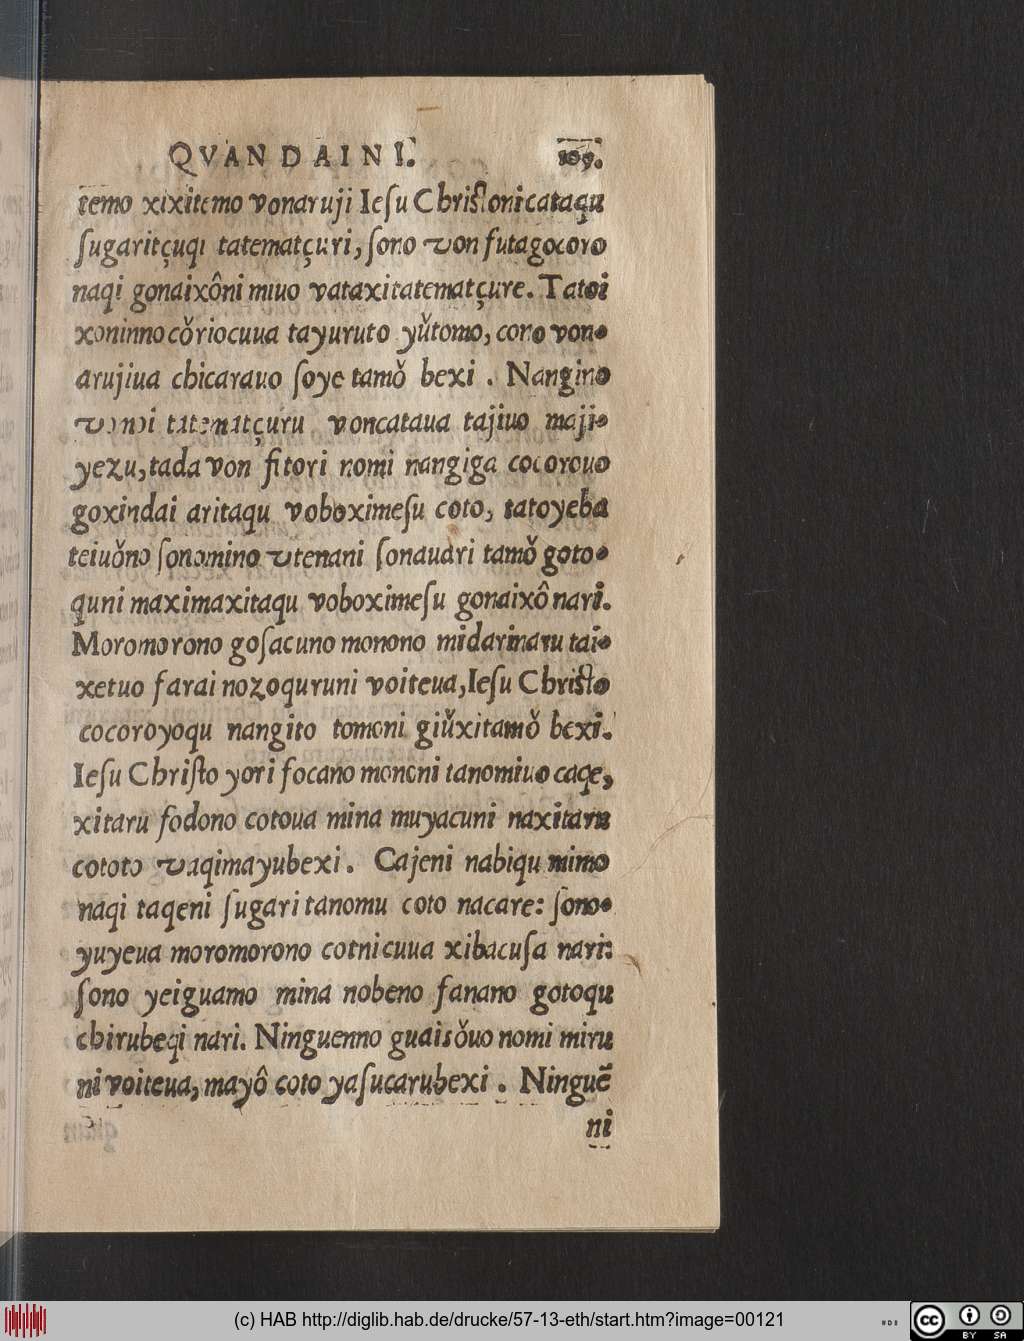 QVAN DAINI. 109.
temo xixitemo vonaruji Ieſu Chriſto nicataqu
ſugaritçuqi tatematçuri, ſono von futagocoro
naqi gonaixôni miuo vataxitatematçure. Tatoi
xoninno cŏriocuua tayuruto yŭtomo, cono von-
arujiua chicarauo ſoye tamŏ bexi. Nangino
vomoi tatematçuru voncataua tajiuo maji-
yezu, tada von fitori nomi nangiga cocorouo
goxindai aritaqu voboximeſu coto, tatoyeba
teiuŏno ſonomino vtenani ſonauari tamŏ goto-
quni maximaxitaqu voboximeſu gonaixô nari.
Moromorono goſacuno monono midarinaru tai-
xetuo farai nozoquruni voiteua, Ieſu Chriſto
cocoroyoqu nangito tomoni giŭxitamŏ bexi.
Ieſu Chriſto yori focano mononi tanomiuo caqe,
xitaru fodono cotoua mina muyacuni naxitaru
cototo vaqimayubexi. Cajeni nabiqu mimo
naqi taqeni ſugari tanomu coto nacare: ſono-
yuyeua moromorono cotnicuua xibacuſa nari:
ſono yeiguamo mina nobeno fanano gotoqu
chirubeqi nari. Ninguenno guaisŏuo nomi miru
ni voiteua, mayô coto yaſucarubexi. Ninguẽ
ni
(c) HAB http://diglib.hab.de/drucke/57-13-eth/start.htm?image=00121
cc BY SA